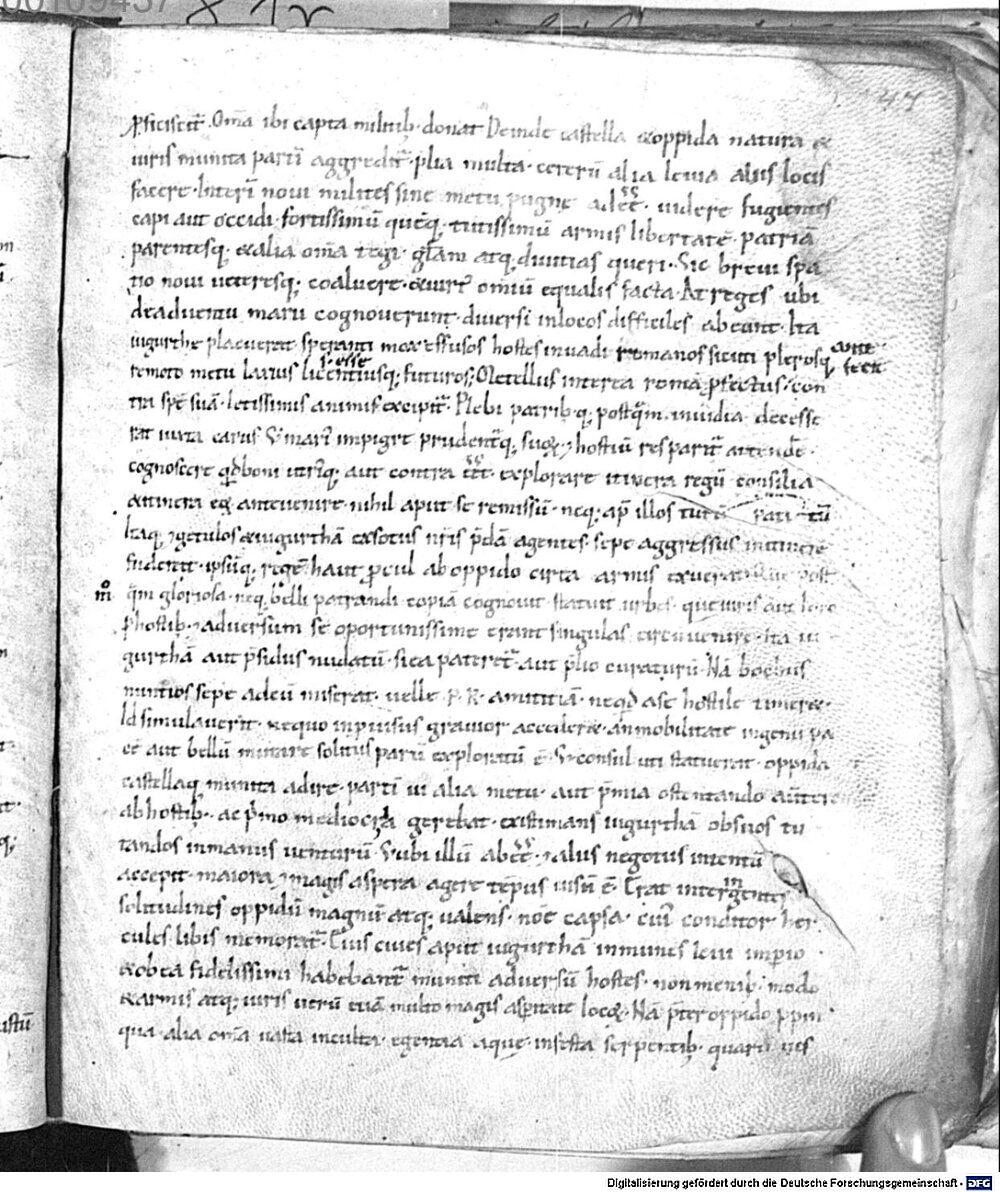 00109437
47
ꝓficiscit̄. Om̄a ibi capta militib; donat Deinde castella & oppida natura &
uiris munita parū aggredit̄. p̄lia multa. ceterū alia leuia aliis locis
facere. Interī noui milites sine metu pugnę adeēē. uidere fugientes
capi aut occidi. fortissimū quēq; tutissimū armis libertatē. patriā
parentesq; & alia om̄a tegi. gl̄am atq; diuitias queri. Sic breui spa
tio noui ueteresq; coaluere. & uirt̄ omiū equalis facta. At reges ubi
deaduentu marii cognouerunt. diuersi inlocos difficiles abeunt. Ita
iugurthe placuerat speranti mox effusos hostes inuadi romanos sicuti plerosq;
s. esse
remoto metu laxius licentiusq; futuros; Metellus interea romā ꝓfectus. con
tra spē suā. letissimis animis excipit̄. Plebi patribq; postq̄m inuidia decesse
rat iuxta carus S; mari impigre prudent̄q; suoꝝ ⁊ hostiū res parit̄ attende
cognoscere qd̄ boni utriq; aut contra ēēt. explorare itinera regū consilia
& itinera eoꝝ anteuenire. nihil aput se remissū. neq; ap̄ illos tutū pati
Itaq; ⁊ getulos & iugurthā exsociis nr̄is p̄dā agentes. sepe aggressus initinere
fuderat. ipsūq; regē haut ꝓcul ab oppido cirta armis exuerat. post
q̄m gloriosa. neq; belli patrandi copiā cognouit. statuit urbes. que uiris aut loco
ꝓhostib; ⁊ aduersum se oportunissime erant singulas circuuenire. Ita iu
gurthā aut p̄sidiis nudatū. si ea pateret̄. aut p̄lio certaturū. Nā bochus
nuntios sepe adeū miserat. uelle P. R. amicitiā. neqd̄ ase hostile timeret.
Id simulauerit. nequo inprouisus grauior accederet. an mobilitate ingenii pa
cē aut bellū mutare solitus parū exploratū ē. S; consul uti statuerat. oppida
castellaq; munita adire. partī ui alia metu. aut p̄mia ostentando auertere
abhostib;. ac p̄mo mediocria gerebat. existimans iugurthā obsuos tu
tandos inmanus uenturū. S; ubi illū abēē. ⁊ aliis negotiis intentū
accepit. maiora ⁊ magis aspera agere tēpus uisū ē. Erat inter ingentes
solitudines oppidū magnū atq; ualens. nōe capsa. cui᷒ conditor her
cules libis memorat̄. Eius ciues aput iugurthā inmunes leui imperio
& obea fidelissimi habebant̄. muniti aduersū hostes. non menib; modo
& armis atq; uiris uerū etiā multo magis asperitate locoꝝ. Nā p̄ter oppido ꝓpin
qua. alia om̄a uasta inculta. egentia aque. infesta serpentib;. quarū uis
Digitalisierung gefördert durch die Deutsche Forschungsgemeinschaft - DFG